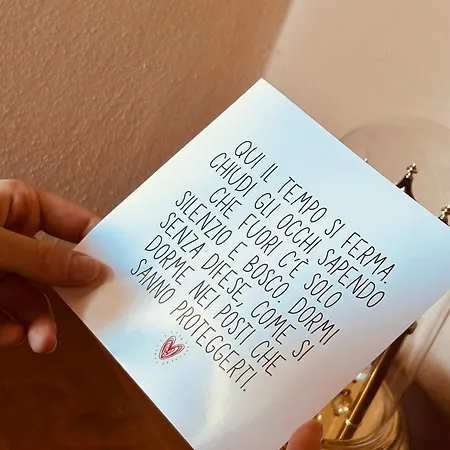 QUI IL TEMPO SI FERMA.
CHIUDI GLI OCCHI SAPENDO
CHE FUORI C'È SOLO
SILENZIO E BOSCO. DORMI
SENZA DIFESE, COME SI
DORME NEI POSTI CHE
SANNO PROTEGGERTI.